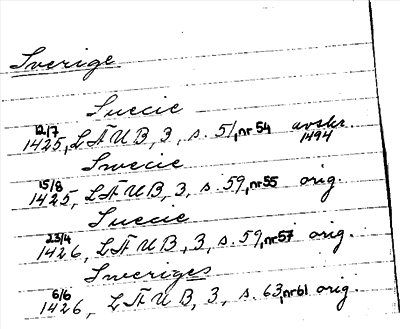 Sverige
Suecie
12/7 1425, LÄUB, 3, s. 51, nr 54 avskr. 1494
Swecie
15/8 1425, LÄUB, 3, s. 59, nr 55 orig.
Suecie
23/4 1426, LÄUB, 3, s. 59, nr 57 orig.
Sweriges
6/6 1426, LÄUB, 3, s. 63, nr 61 orig.